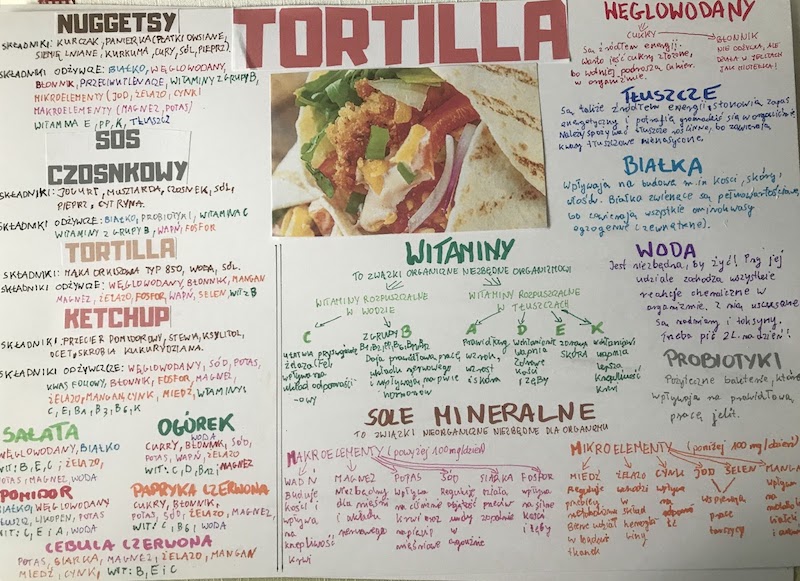 NUGGETSY
SKŁADNIKI: KURCZAK, PANIERKA (PŁATKI OWSIANE,
SIEMIĘ LNIANE, KURKUMA, CURY, SÓL, PIEPRZ).
SKŁADNIKI ODŻYWCZE: BIAŁKO, WĘGLOWODANY,
BŁONNIK, PRZECIWUTLENIACZE, WITAMINY Z GRUPY B,
MIKROELEMENTY (JOD, ŻELAZO, CYNK)
MAKROELEMENTY (MAGNEZ, POTAS)
WITAMINA E, PP, K, TŁUSZCZ
SOS
CZOSNKOWY
SKŁADNIKI: JOGURT, MUSZTARDA, CZOSNEK, SÓL,
PIEPRZ, CYTRYNA.
SKŁADNIKI ODŻYWCZE: BIAŁKO, PROBIOTYKI, WITAMINA C
WITAMINY Z GRUPY B, WAPŃ, FOSFOR
TORTILLA
SKŁADNIKI: MĄKA ORKISZOWA TYP 850, WODA, SÓL.
SKŁADNIKI ODŻYWCZE: WĘGLOWODANY, BŁONNIK, MANGAN
MAGNEZ, ŻELAZO, FOSFOR, WAPŃ, SELEN, WIT z B
KETCHUP
SKŁADNIKI: PRZECIER POMIDOROWY, STEWIA, KSYLITOL,
OCET, SKROBIA KUKURYDZIANA.
SKŁADNIKI ODŻYWCZE: WĘGLOWODANY, SÓD, POTAS,
KWAS FOLIOWY, BŁONNIK, FOSFOR, MAGNEZ,
ŻELAZO, MANGAN, CYNK, MIEDŹ, WITAMINY:
C, E, B2, B3, B6, K
SAŁATA
WĘGLOWODANY, BIAŁKO
WIT: B, E, C; ŻELAZO,
POTAS, MAGNEZ, WODA
OGÓREK
WODA
CUKRY, BŁONNIK, SÓD,
POTAS, WAPŃ, ŻELAZO
WIT: C, D, B12; MAGNEZ
POMIDOR
BIAŁKO, WĘGLOWODANY
LIKOPEN, POTAS
WIT: C, E i A, WODA
PAPRYKA CZERWONA
CUKRY, BŁONNIK,
POTAS, SÓD, ŻELAZO, MAGNEZ,
WIT: C i B6 i WODA
CEBULA CZERWONA
POTAS, SIARKA, MAGNEZ, ŻELAZO, MANGAN
MIEDŹ, CYNK, WIT: B, E i C
TORTILLA
WITAMINY
TO ZWIĄZKI ORGANICZNE NIEZBĘDNE ORGANIZMOWI
WITAMINY ROZPUSZCZALNE
W WODZIE
C
ułatwia przyswajanie
żelaza (Fe),
wpływa na
układ odporności
-owy
Z GRUPY B
Dają prawidłową pracę
układu nerwowego
i wpływają na prace
hormonów
WITAMINY ROZPUSZCZALNE
W TŁUSZCZACH
A
Prawidłowy
wzrok,
wzrost
i skóra
D
Wchłanianie
wapnia
zdrowe
kości
i zęby
E
zdrowa
SKÓRA
K
wchłanianie
wapnia
lepsza
krzepliwość
krwi
SOLE MINERALNE
TO ZWIĄZKI NIEORGANICZNE NIEZBĘDNE DLA ORGANIZMU
MAKROELEMENTY (powyżej 100mg/dzień)
WAPŃ
Buduje
kości i
wpływa
na
krzepliwość
krwi
MAGNEZ
Niezbędny
dla mięśni
i układu
nerwowego
POTAS
wpływa
na ciśnienie
krwi oraz
napięcie
mięśniowe
SÓD
Reguluje
objętość
wody
SIARKA
działa
przeciw
zapalnie
FOSFOR
wpływa
na silne
kości
i zęby
MIKROELEMENTY (poniżej 100 mg/dzień)
MIEDŹ
Reguluje
przebieg
metabolizmu
Bierze udział
w budowie
tkanek
ŻELAZO
wchodzi
w
skład
hemoglo-
biny
CYNK
wpływa
na
odporno-
ść
JOD SELEN
Wspierają
prace
tarczycy
MANGAN
wpływa
na
WĘGLOWODANY
CUKRY
Są źródłem energii.
Warto jeść cukry złożone,
bo wolniej podnoszą cukier
w organizmie.
BŁONNIK
NIE ODŻYWIA, ALE
DZIAŁA W JELITACH
JAK MIOTEŁKA!
TŁUSZCZE
Są także źródłem energii, stanowią zapas
energetyczny i potrafią gromadzić się w organizmie.
Należy spożywać tłuszcze roślinne, bo zawierają
kwasy tłuszczowe nienasycone.
BIAŁKA
Wpływają na budowę m.in kości, skóry,
włosów. Białka zwierzęce są pełnowartościowe,
bo zawierają wszystkie aminokwasy
egzogenne (zewnętrzne).
WODA
Jest niezbędna, by żyć! Przy jej
udziale zachodzą wszystkie
reakcje chemiczne w
organizmie. Z nią usuwane
są nadmiary i toksyny.
Trzeba pić 2L na dzień!!
PROBIOTYKI
Pożyteczne bakterie, które
wpływają na prawidłową
pracę jelit.